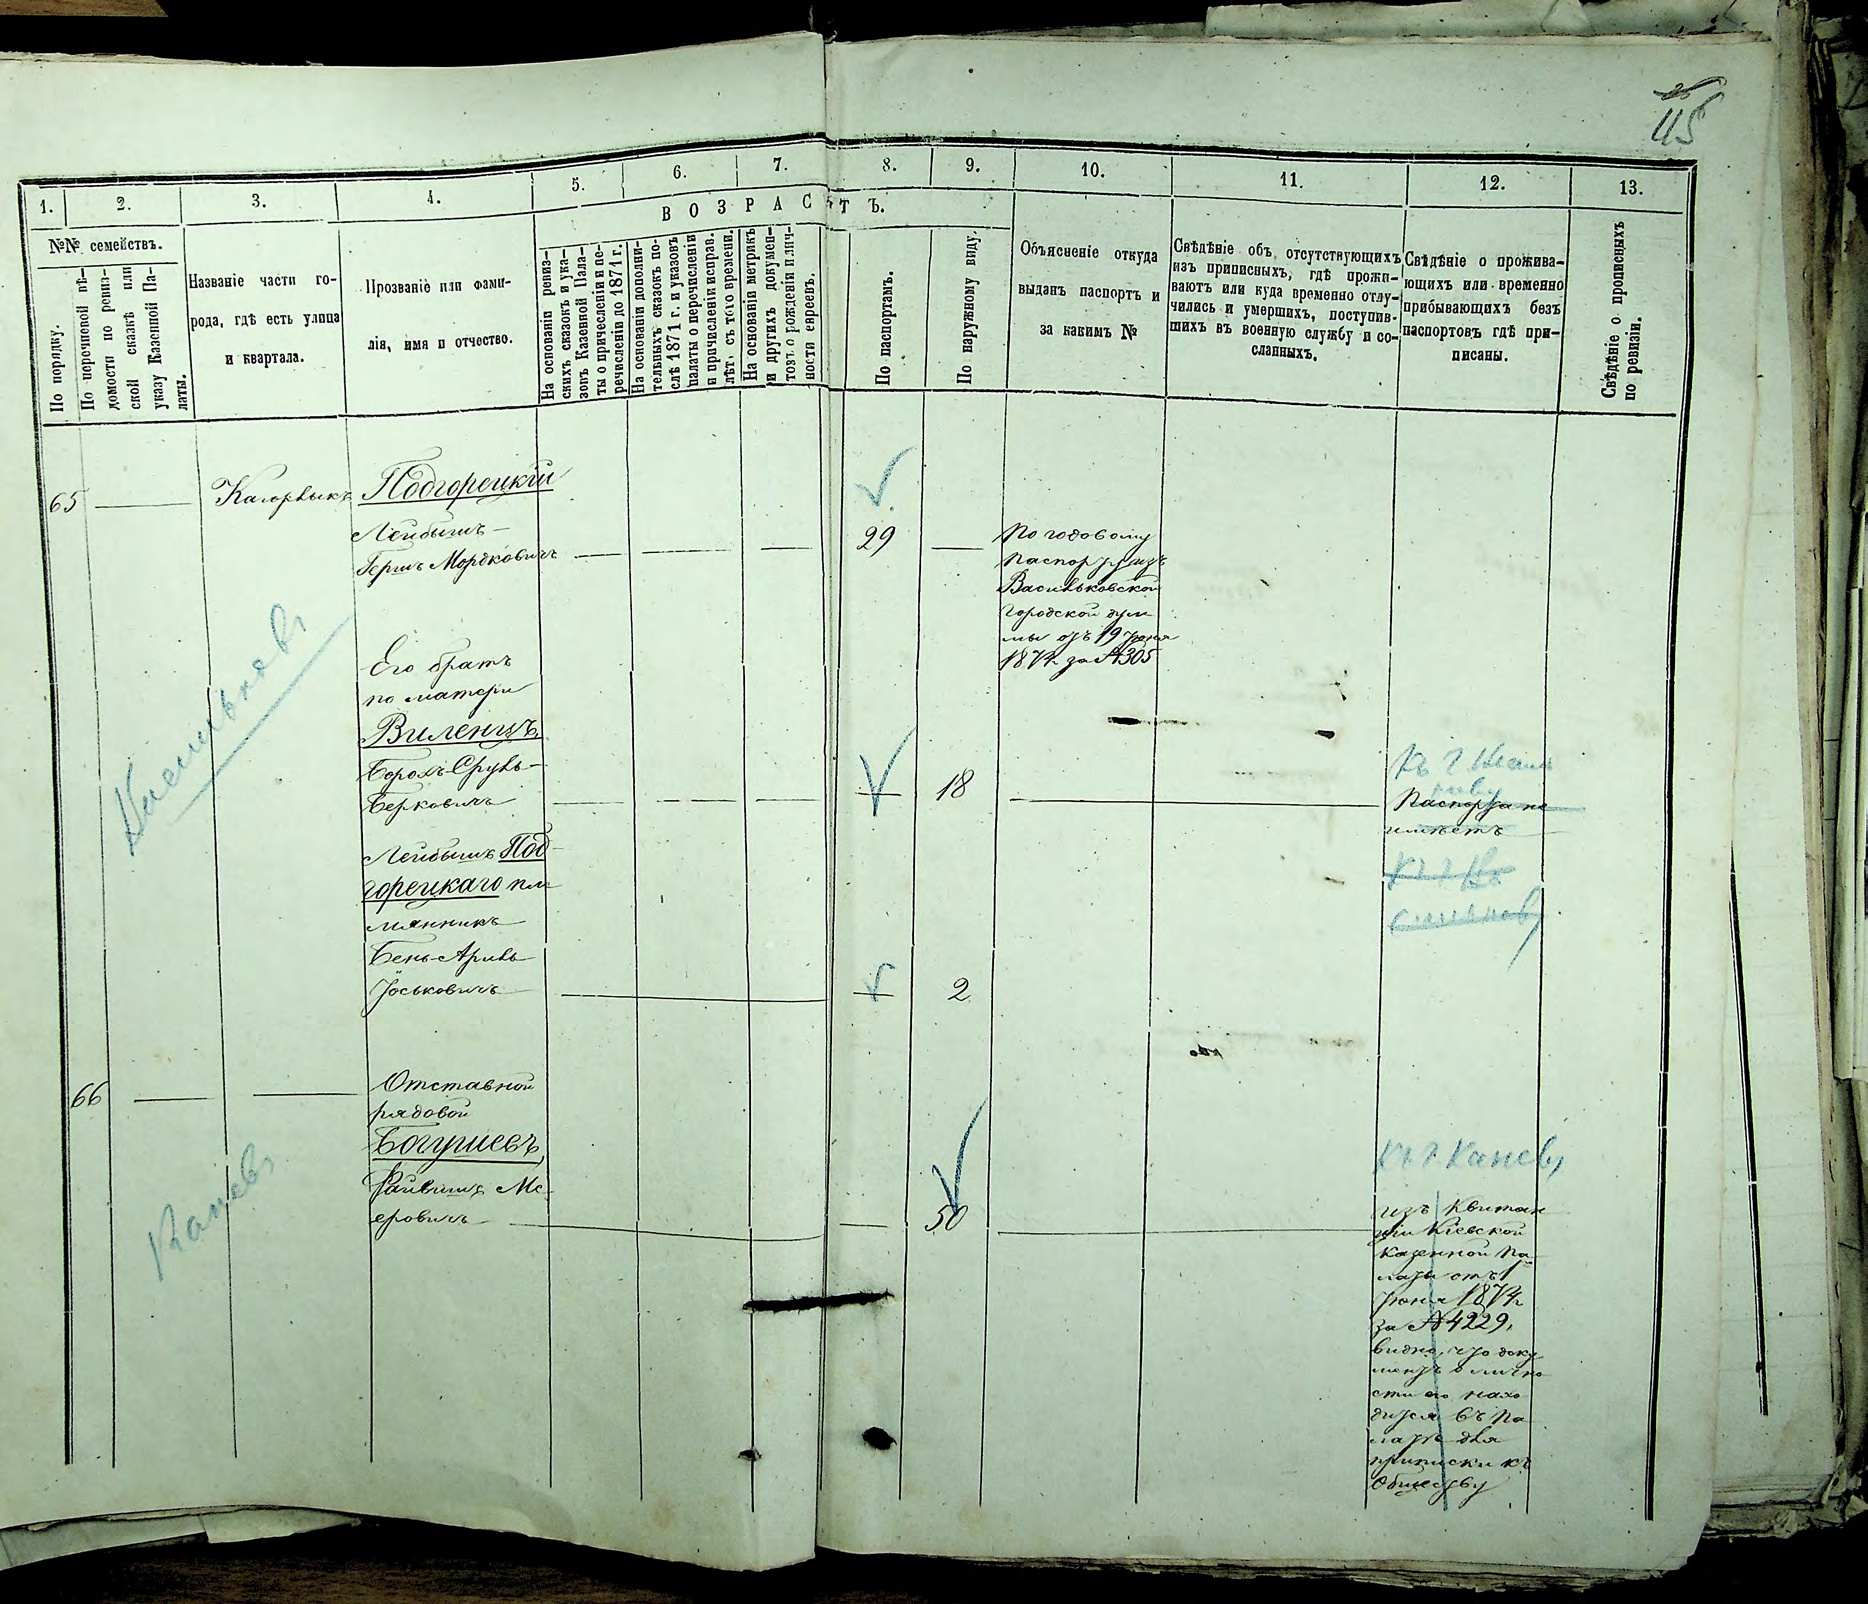 115
1.
2.
3.
4.
5.
6.
7.
8.
9.
10.
11.
12.
13.
№№ семействъ.
По порядку.
По перечневой вѣ-
домости по ревиз-
ской сказкѣ или
указу Казенной Па-
латы.
Названіе части го-
рода, гдѣ есть улица
и квартала.
Прозваніе или фами-
лія, имя и отчество.
ВОЗРАСТЪ.
На основаніи ревиз-
скихъ сказокъ и ука-
зовъ Казенной Пала-
ты о причисленіи и пе-
речисленіи до 1871 г.
На основаніи дополни-
тельныхъ сказокъ по-
слѣ 1871 г. и указовъ
палаты о перечисленіи
и причисленіи исправ.
лѣт, съ того времени.
На основаніи метрикъ
и другихъ докумен-
товъ о рожденіи и лич-
ности евреевъ.
По паспортамъ.
По наружному виду.
Объясненіе откуда
выданъ паспортъ и
за какимъ №
Свѣдѣніе объ, отсутствующихъ
изъ приписныхъ, гдѣ прожи-
ваютъ или куда временно отлу-
чились и умершихъ, поступив-
шихъ въ военную службу и со-
сланныхъ.
Свѣдѣніе о прожива-
ющихъ или временно
прибывающихъ безъ
паспортовъ гдѣ при-
писаны.
Свѣдѣніе о прописныхъ
по ревизіи.
65
Кагорлыкъ
Подгорецкій
Лейбышъ-
Гершъ Мордковичъ
29
По годовому
паспорту изъ
Васильковской
городской дум
мы отъ 19 Іюня
1874 за №305
Васильковъ
Его братъ
по матери
Виленцъ
Борохъ-Сруль-
Берковичъ
18
Къ г. Василь
кову
Паспорта не
имѣетъ
Лейбышъ Под
горецкаго пле
мянникъ
Бень-Аріль
Іоськовичъ
2
66
Отставной
рядовой
Богушевъ
Файвишъ Ме
еровичъ
50
Каневъ
Къ г. Каневу
изъ квитан
ціи Кіевской
Казенной Па
латы отъ 1
Іюня 1874
за №4229,
видно, что доку
ментъ о лично
сти его нахо
дится въ Па
латѣ для
приписки къ
Обществу